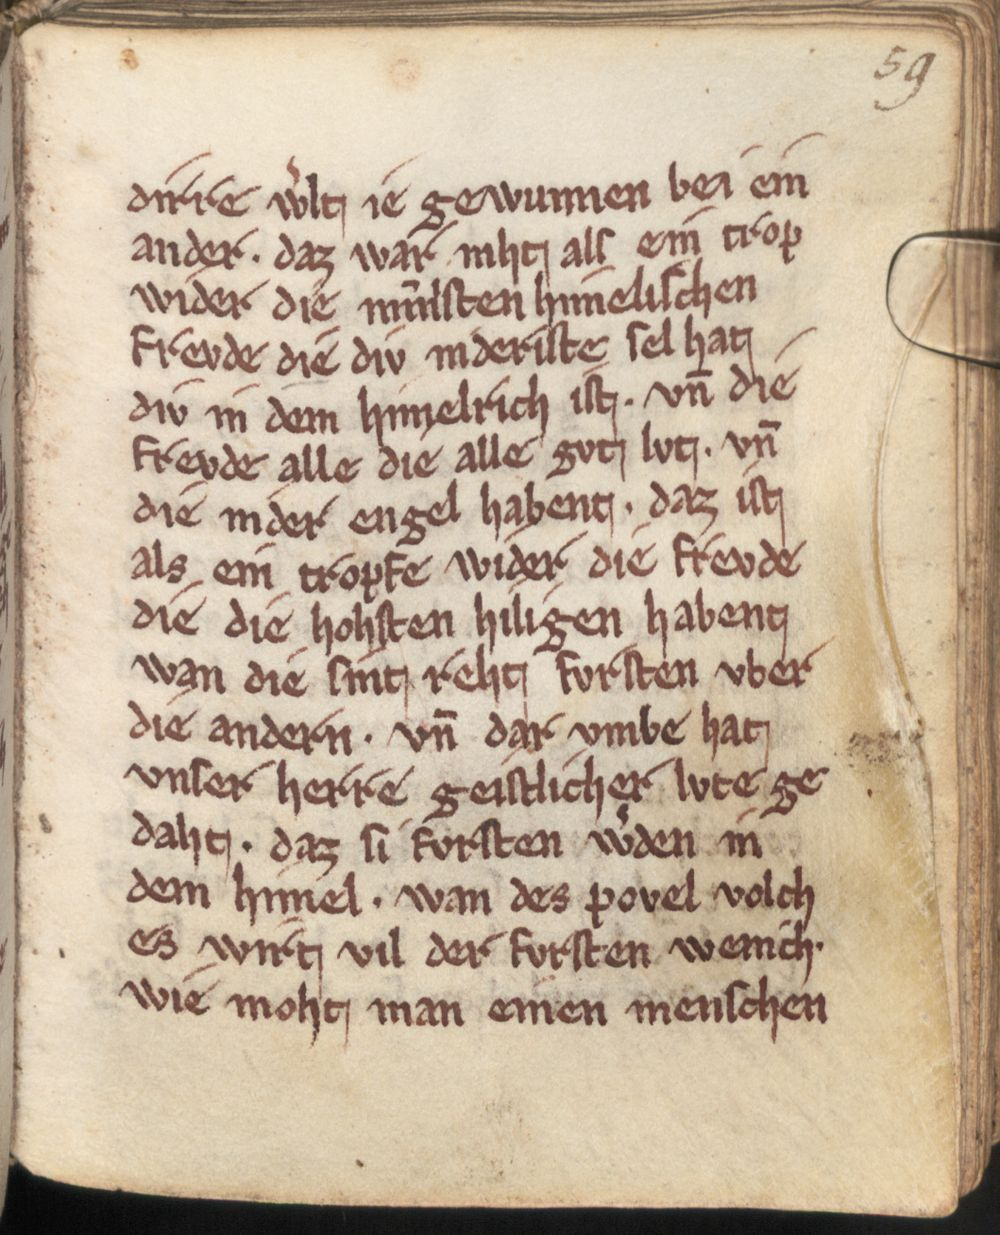 59
dirre w̉lt ie gewunnen bei ein
ander · daz war niht als ein trop
wider die minsten himelischen
frevde die div nideriste sel hat
div in dem himelrich ist · vn̄ die
frevde alle die alle gvt lvt · vn̄
die nider engel habent · daz ist
als ein tropfe wider die frevde
die die hohsten hiligen habent
wan die sint reht fvrsten vber
die andern · vn̄ dar vmbe hat
vnser herre geistlicher lvte ge
daht · daz si fvrsten w̉den in
dem himel · wan des povel volch
es wirt vil der fvrsten wenich ·
wie moht man einen menschen